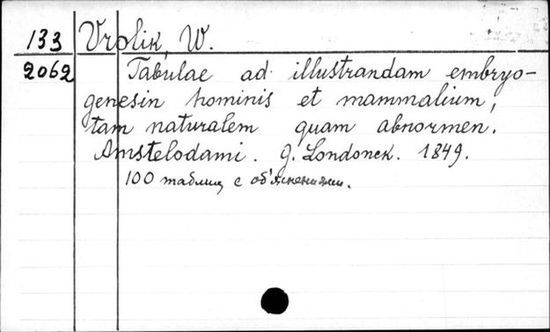 133 Vrolik, W.
2062 Tabulae ad illustrandam embryo-
genesin hominis et mammalium,
tam naturalem quam abnormen.
Amstelodami. G. Londonck. 1849.
100 таблиц с об'яснениями.